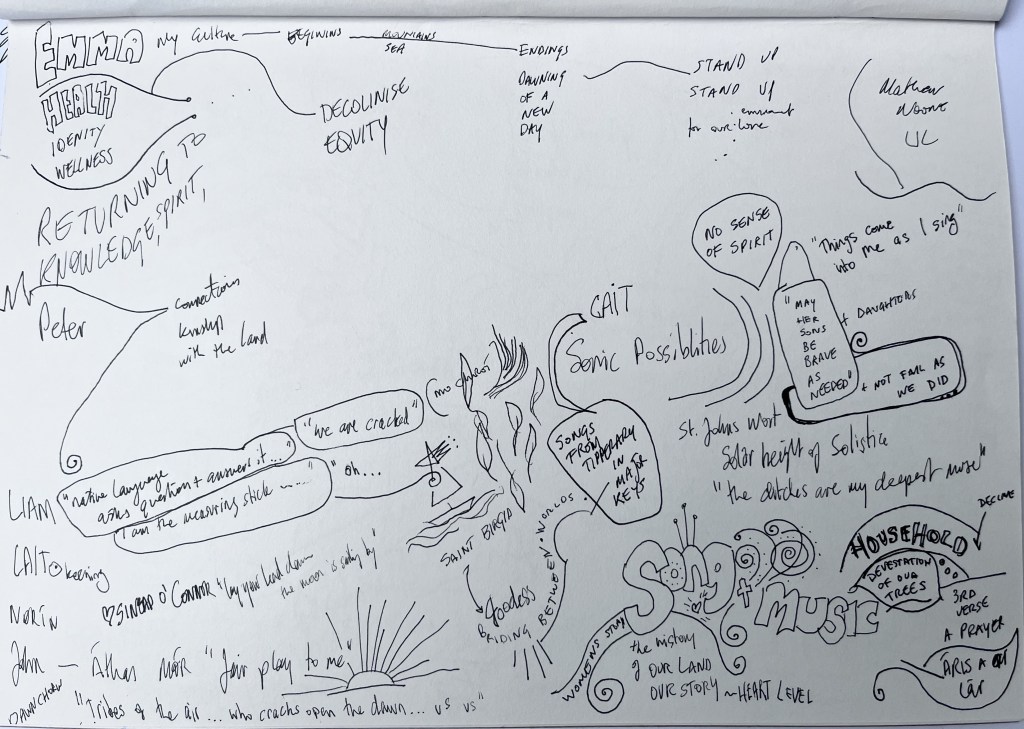 EMMA
My Culture
BEGIWINS
MOUNTAINS
SEA
ENDINGS
DAWNING
OF A
NEW
DAY
STAND UP
STAND UP
for our love
...
Mathew
Noone
UL
HEALTH
IDENITY
WELLNESS
...
DECOLINISE
EQUITY
RETURNING TO
KNOWLEDGE, SPIRIT,
Peter
connections
kinship
with the land
NO SENSE
OF SPIRIT
"Things come
into me as I sing"
CAIT
Sonic Possiblities
"MAY
HER
SONS
BE
BRAVE
AS
NEEDED"
+ DAUGHTORS
+ NOT FAIL AS
WE DID
"we are cracked"
SONGS
FROM
TIPPERARY
IN
MAJOR
KEYS
St. Johns Wort
Solar height of Solistice
"the ditches are my deepest nurse"
LIAM
"native language
asks question + answers it..."
I am the measuring stick ......
"oh...
SAINT BIRGID
Goddess
BRIDING BETWEEN · WORLDS ·
CAIT
keening
NORÍN
SINEAD O'CONNOR
"lay your head down
the moon is sailing by"
John — Áthas MÓR "fair play to me"
"Tribes of the air ... who cracks open the dawn ... us us"
Song
+
MUSIC
WOMENS STORY
the history
of OUR LAND
OUR STORY ~ HEART LEVEL
HOUSEHOLD
DECLINE
DEVESTATION
OF OUR
TREES
3RD
VERSE
A PRAYER
ÁRIS A
LÁR